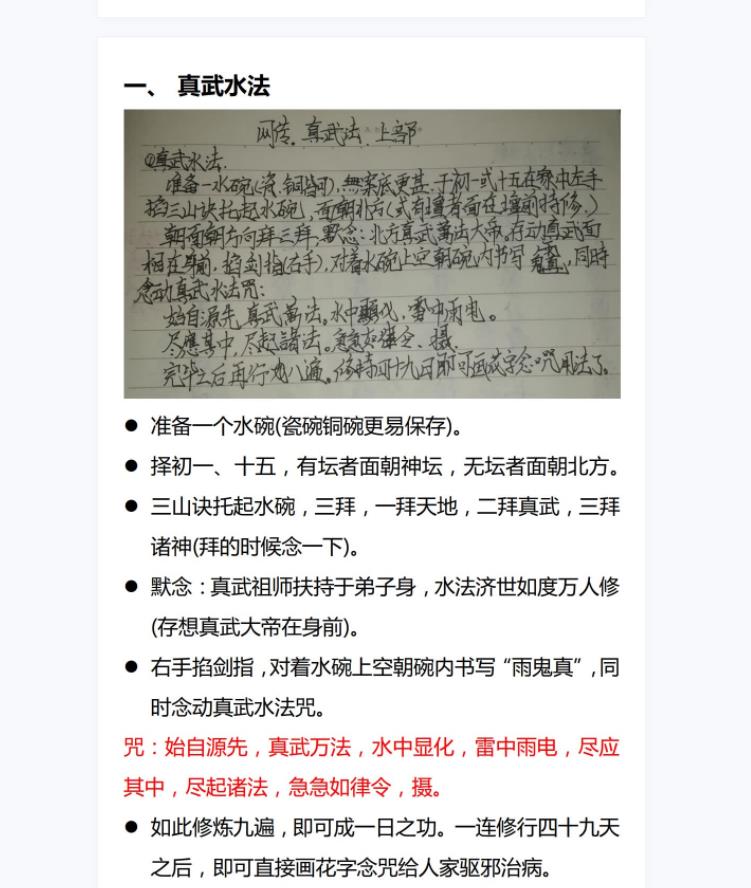 一、 真武水法
网传。真武法.上部
①真武水法.
准备一水碗(瓷.铜皆可),無案底更甚.于初一或十五在家中左手
掐三山诀托起水碗,面朝北方(或有壇者面在壇前持修.)
朝面朝方向拜三拜,默念:北方真武萬法大帝。存动真武面
相在身前.掐剑指(右手),对着水碗上空朝碗内书写,同时
念动真武水法咒:
始自源先,真武萬法。水中顯化,雷中雨电。
尽應其中,尽起諸法。急急如律令.摄.
完毕之后再行八遍。修持四十九日即可画花字念咒用法了。
● 准备一个水碗(瓷碗铜碗更易保存)。
● 择初一、十五，有坛者面朝神坛，无坛者面朝北方。
● 三山诀托起水碗，三拜，一拜天地，二拜真武，三拜
诸神(拜的时候念一下)。
● 默念：真武祖师扶持于弟子身，水法济世如度万人修
(存想真武大帝在身前)。
● 右手掐剑指，对着水碗上空朝碗内书写“雨鬼真”，同
时念动真武水法咒。
咒：始自源先，真武万法，水中显化，雷中雨电，尽应
其中，尽起诸法，急急如律令，摄。
● 如此修炼九遍，即可成一日之功。一连修行四十九天
之后，即可直接画花字念咒给人家驱邪治病。